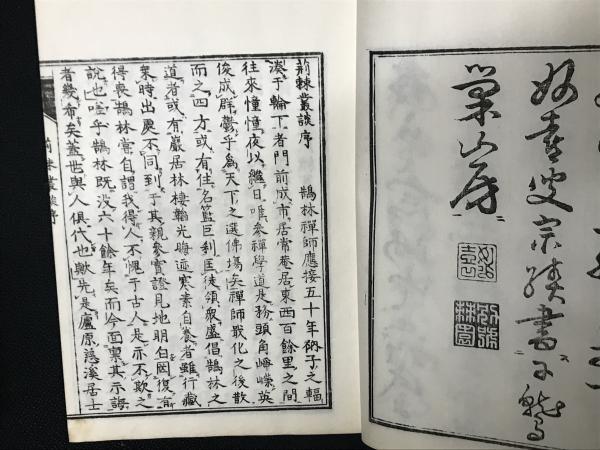 妙喜叟宗績書于鷲
巣山房
荊棘叢談序
鵠林禪師應接五十年衲子之輻
湊于輪下者門前成市居常菴居東西百餘里之間
往來憧憧夜以繼日唯參禪學道是務頭角崢嶸英
俊成群鬱乎爲天下之選佛場矣禪師戢化之後散
而之四方或有住名籃巨刹匡徒領衆盛倡鵠林之
道者或有巖居林棲韜光晦迹寒素自養者雖行藏
異時出處不同到于其親參實證見地明白因復有
得喪鵠林嘗自謂我得人不愧于古人是亦不欺之
說也嗟乎鵠林既沒六十餘年矣而今面稟其示誨
者幾希矣蓋世與人俱代也歟先是廬原慈溪居士